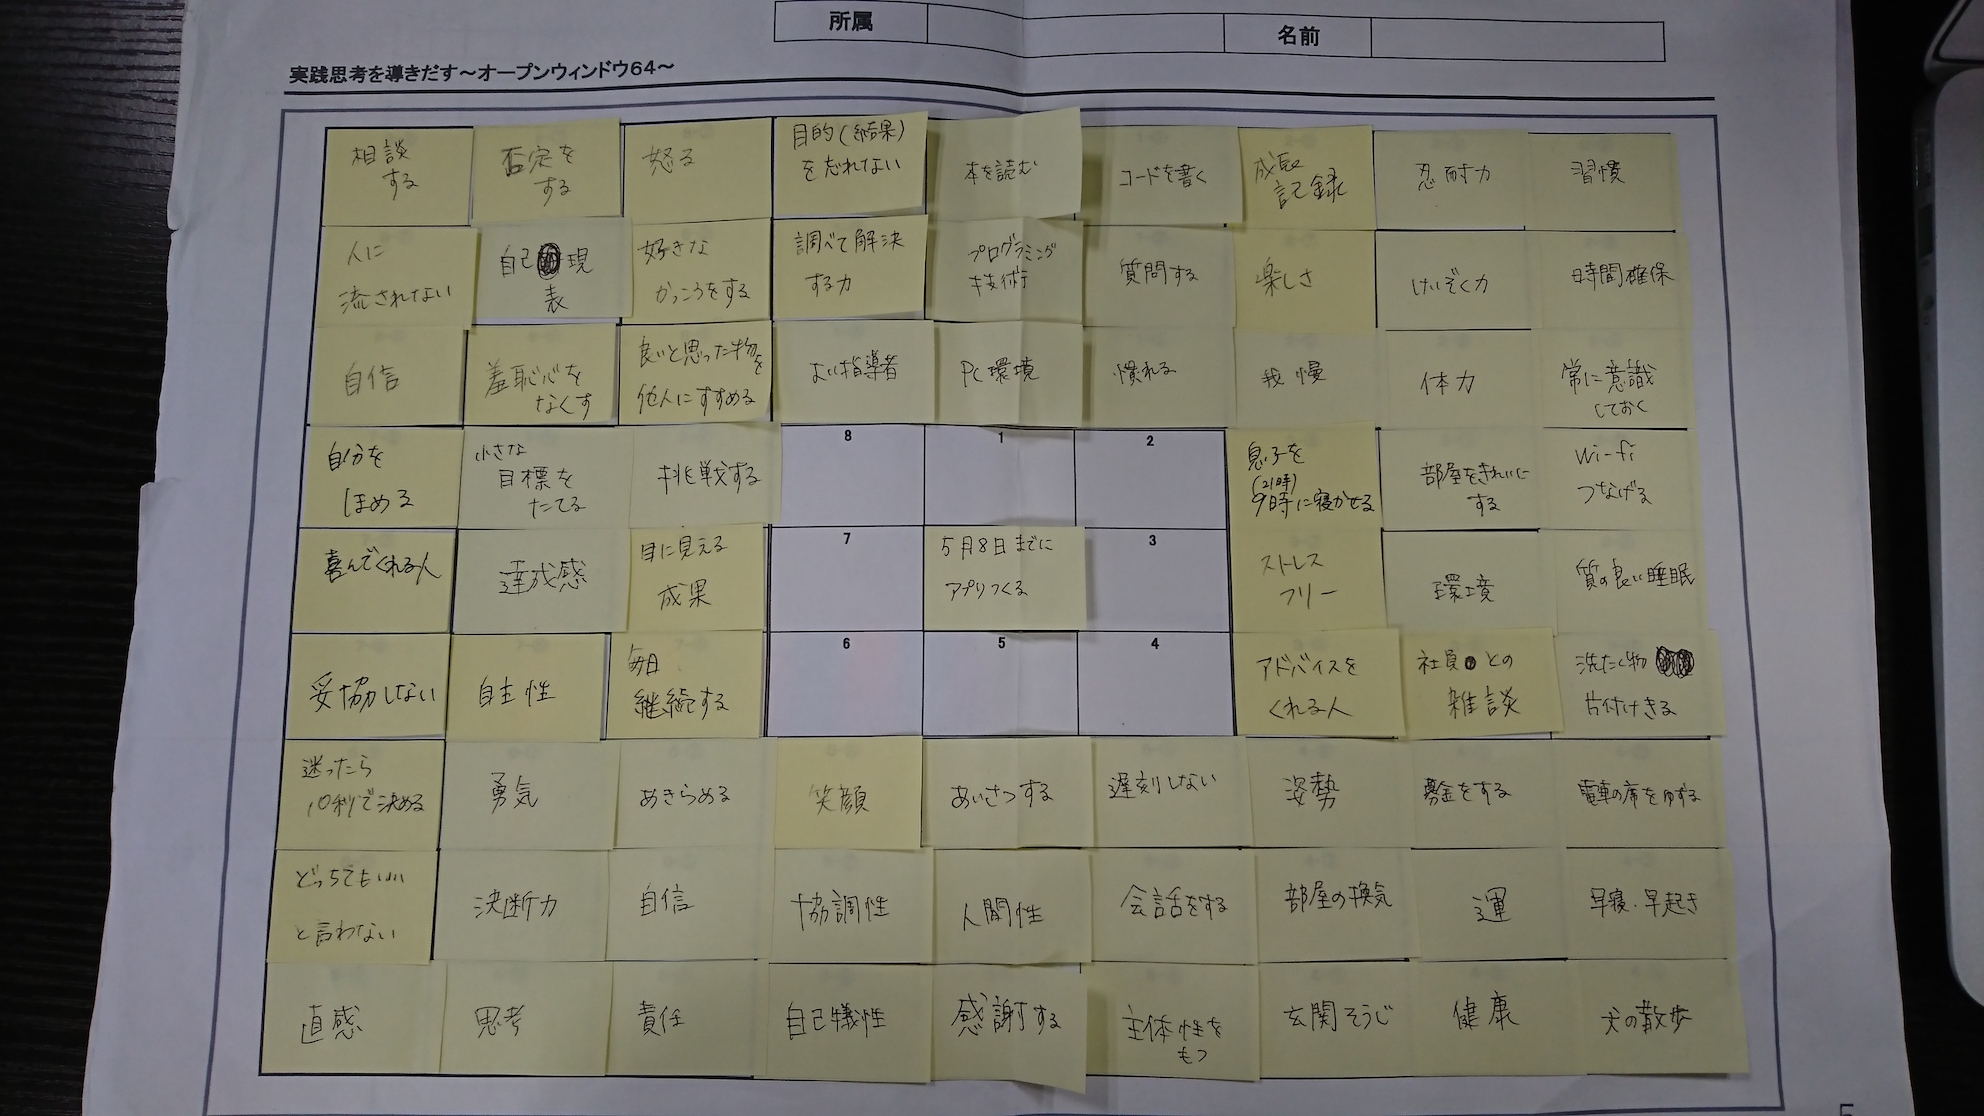 所属
名前
実践思考を導きだす～オープンウィンドウ64～
相談
する
否定を
する
怒る
目的(結果)
を忘れない
本を読む
コードを書く
記録
忍耐力
習慣
人に
流されない
自己現
表
好きな
かっこうをする
調べて解決
する力
プログラミング
技術
質問する
楽しさ
けいぞく力
時間確保
自信
羞恥心を
なくす
良いと思った物を
他人にすすめる
よい指導者
PC環境
慣れる
我慢
体力
常に意識
しておく
自分を
ほめる
小さな
目標を
たてる
挑戦する
8
1
2
息子を
(21時)
9時に寝かせる
部屋をきれいに
する
Wi-fi
つなげる
喜んでくれる人
達成感
目に見える
成果
7
5月8日までに
アプリつくる
3
ストレス
フリー
環境
質の良い睡眠
妥協しない
自主性
毎日
継続する
6
5
4
アドバイスを
くれる人
社員との
雑談
洗たく物
片付けきる
迷ったら
10秒で決める
勇気
あきらめる
笑顔
あいさつする
遅刻しない
姿勢
募金をする
電車の席をゆずる
どっちでもいい
と言わない
決断力
自信
協調性
人間性
会話をする
部屋の換気
運
早寝・早起き
直感
思考
責任
自己犠牲
感謝する
主体性を
もつ
玄関そうじ
健康
犬の散歩
5